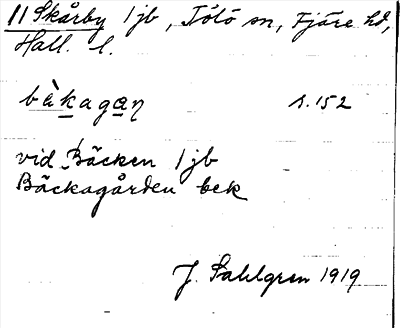 11 Skårby 1 jb, Tölö sn, Fjäre hd,
Hall. l.
bàkagaŋ s. 152
vid Bäcken 1 jb
Bäckagården bek
J. Sahlgren 1919